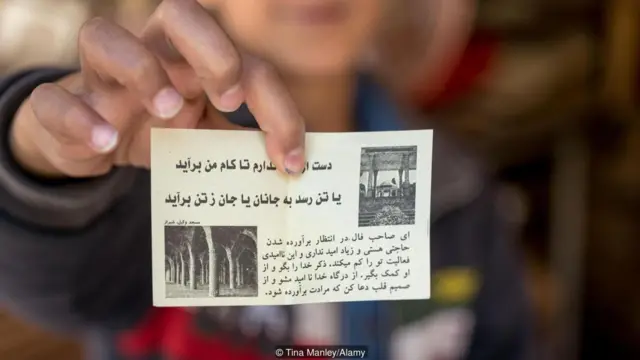 دست از ندارم تا کام من برآید
یا تن رسد به جانان یا جان ز تن برآید
مسجد وکیل، شیراز
ای صاحب فال، در انتظار برآورده شدن
حاجتی هستی و زیاد امید نداری و این ناامیدی
فعالیت تو را کم میکند. ذکر خدا را بگو و از
او کمک بگیر. از درگاه خدا نا امید مشو و از
صمیم قلب دعا کن که مرادت برآورده شود.
© Tina Manley/Alamy